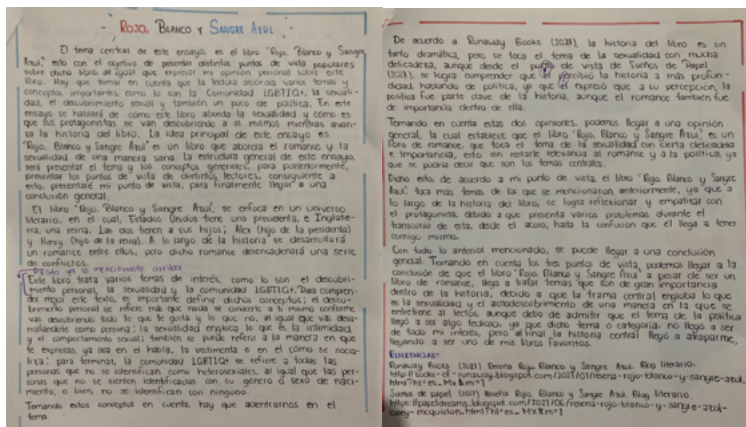 - ROJO, BLANCO Y SANGRE AZUL -
El tema central de este ensayo, es el libro "Rojo, Blanco y Sangre
Azul", esto con el objetivo de presentar distintos puntos de vista populares
sobre dicho libro, al igual que expresar mi opinión personal sobre este
libro. Hay que tomar en cuenta que la lectura aborda varios temas y
conceptos importantes, como lo son la Comunidad LGBTIQ+, la sexuali-
dad, el descubrimiento sexual y también un poco de política. En este
ensayo se hablará de como este libro aborda la sexualidad y cómo es
que sus protagonistas se van descubriendo a si mismos mientras avan-
za la historia del libro. La idea principal de este ensayo es
"Rojo, Blanco y Sangre Azul" es un libro que aborda el romance y la
sexualidad de una manera sana. La estructura general de este ensayo,
será presentar el tema y los conceptos generales, para posteriormente,
presentar los puntos de vista de distintos lectores, consiguiente a
esto, presentaré mi punto de vista, para finalmente llegar a una
conclusión general.
El libro "Rojo, Blanco y Sangre Azul", se enfoca en un universo
literario, en el cual, Estados Unidos tiene una presidenta, e Inglate-
rra, una reina. Las dos tienen a sus hijos; Alex (hijo de la presidenta)
y Henry (hijo de la reina). A lo largo de la historia se desarrollará
un romance entre ellos, pero dicho romance desencadenará una serie
de conflictos.
ya mencionado arriba
Este libro trata varios temas de interés, como lo son el descubri-
miento personal, la sexualidad y la comunidad LGBTIQ+. Para compren-
der mejor este texto, es importante definir dichos conceptos; el descu-
brimiento personal se refiere más que nada a conocerte a ti mismo conforme
vas descubriendo todo lo que te gusta y lo que no, al igual que vas desa-
rrollandote como persona; la sexualidad engloba lo que es la intimidad
y el comportamiento sexual; también se puede referir a la manera en que
te expresas, ya sea en el habla, la vestimenta e en el cómo se socia-
liza; para terminar, la comunidad LGBTIQ+ se refiere a todas las
personas que no se identifican como heterosexuales, al igual que las per-
sonas que no se sienten identificadas con su género o sexo de naci-
miento, o bien, no se identifican con ninguno.
Tomando estos conceptos en cuenta, hay que adentrarnos en el
tema.
De acuerdo a Runaway Books (2021), la historia del libro es un
tanto dramática, pero se toca el tema de la sexualidad con mucha
delicadeza, aunque desde el punto de vista de Sueños de Papel
(2021), se logra comprender que percibió la historia a más profun-
didad, hablando de política, ya que el expresó que a su percepción, la
política fue parte clave de la historia, aunque el romance también fue
de importancia dentro de ella.
Tomando en cuenta estas dos opiniones, podemos llegar a una opinión
general, la cual establece que el libro "Rojo, Blanco y Sangre Azul" es un
libro de romance, que toca el tema de la sexualidad con cierta delicadeza
e importancia, esto sin restarle relevancia al romance y a la política, ya
que se podría decir que son los temas centrales.
Dicho esto, de acuerdo a mi punto de vista, el libro "Rojo, Blanco y Sangre
Azul" toca más temas de los que se mencionaron anteriormente, ya que a
lo largo de la historia del libro, se logra reflexionar y empatizar con
el protagonista, debido a que presenta varios problemas durante el
transcurso de esta, desde el acoso, hasta la confusión que él llega a tener
consigo mismo.
Con todo lo anterior mencionado, se puede llegar a una conclusión
general. Tomando en cuenta los tres puntos de vista, podemos llegar a la
conclusión de que el libro "Rojo, Blanco y Sangre Azul" a pesar de ser un
libro de romance, llega a tratar temas que son de gran importancia
dentro de la historia, debido a que la trama central engloba lo que
es la sexualidad y el autodescubrimiento de una manera en la que se
entretiene al lector, aunque debo de admitir que el tema de la política
llegó a ser algo tedioso, ya que dicho tema o categoría, no llegó a ser
de todo mi interés, pero al final la historia central llegó a atraparme,
llegando a ser uno de mis libros favoritos.
REFERENCIAS:
Runaway Books (2021) Reseña Rojo, Blanco y Sangre Azul. Blog literario.
Sueños de papel (2021) Reseña Rojo, Blanco y Sangre Azul. Blog literario.